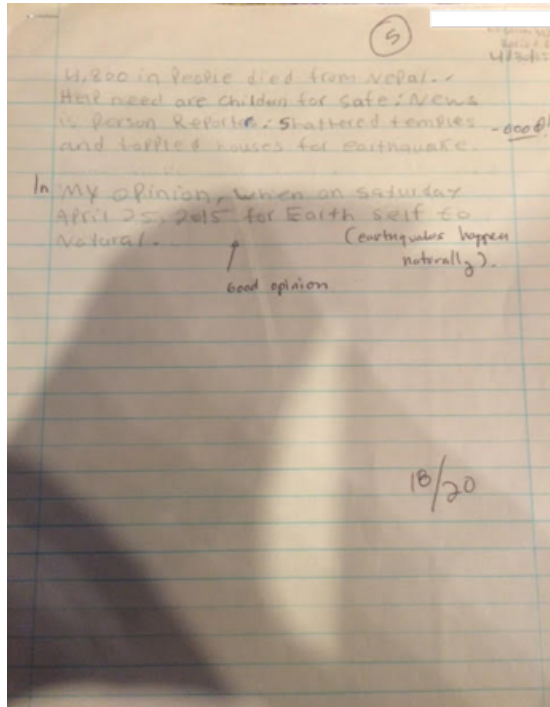 5
4/3/15
4,800 in People died from Nepal..
Help need are children for safe: News
is person Reporter: Shattered temples
- good!
and toppled houses for earthquake.
In My opinion, when on Saturday
April 25, 2015 for Earth self to
Natural.
(earthquakes happen
naturally).
Good opinion
18/20